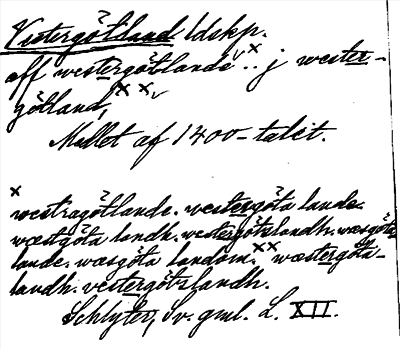 Vestergötland ldskp.
aff westergötlande v x .. j wester-
götland, x x v
Mellet af 1400-talet.
x
westragötlande. westergöta lande.
wæstgöta landh. westergötzlandh. wæsgöta
lande. wæsgöta landom. xx wæstergöta-
landh. vestergötzlandh.
Schlyter, Sv. gml. L. XII.